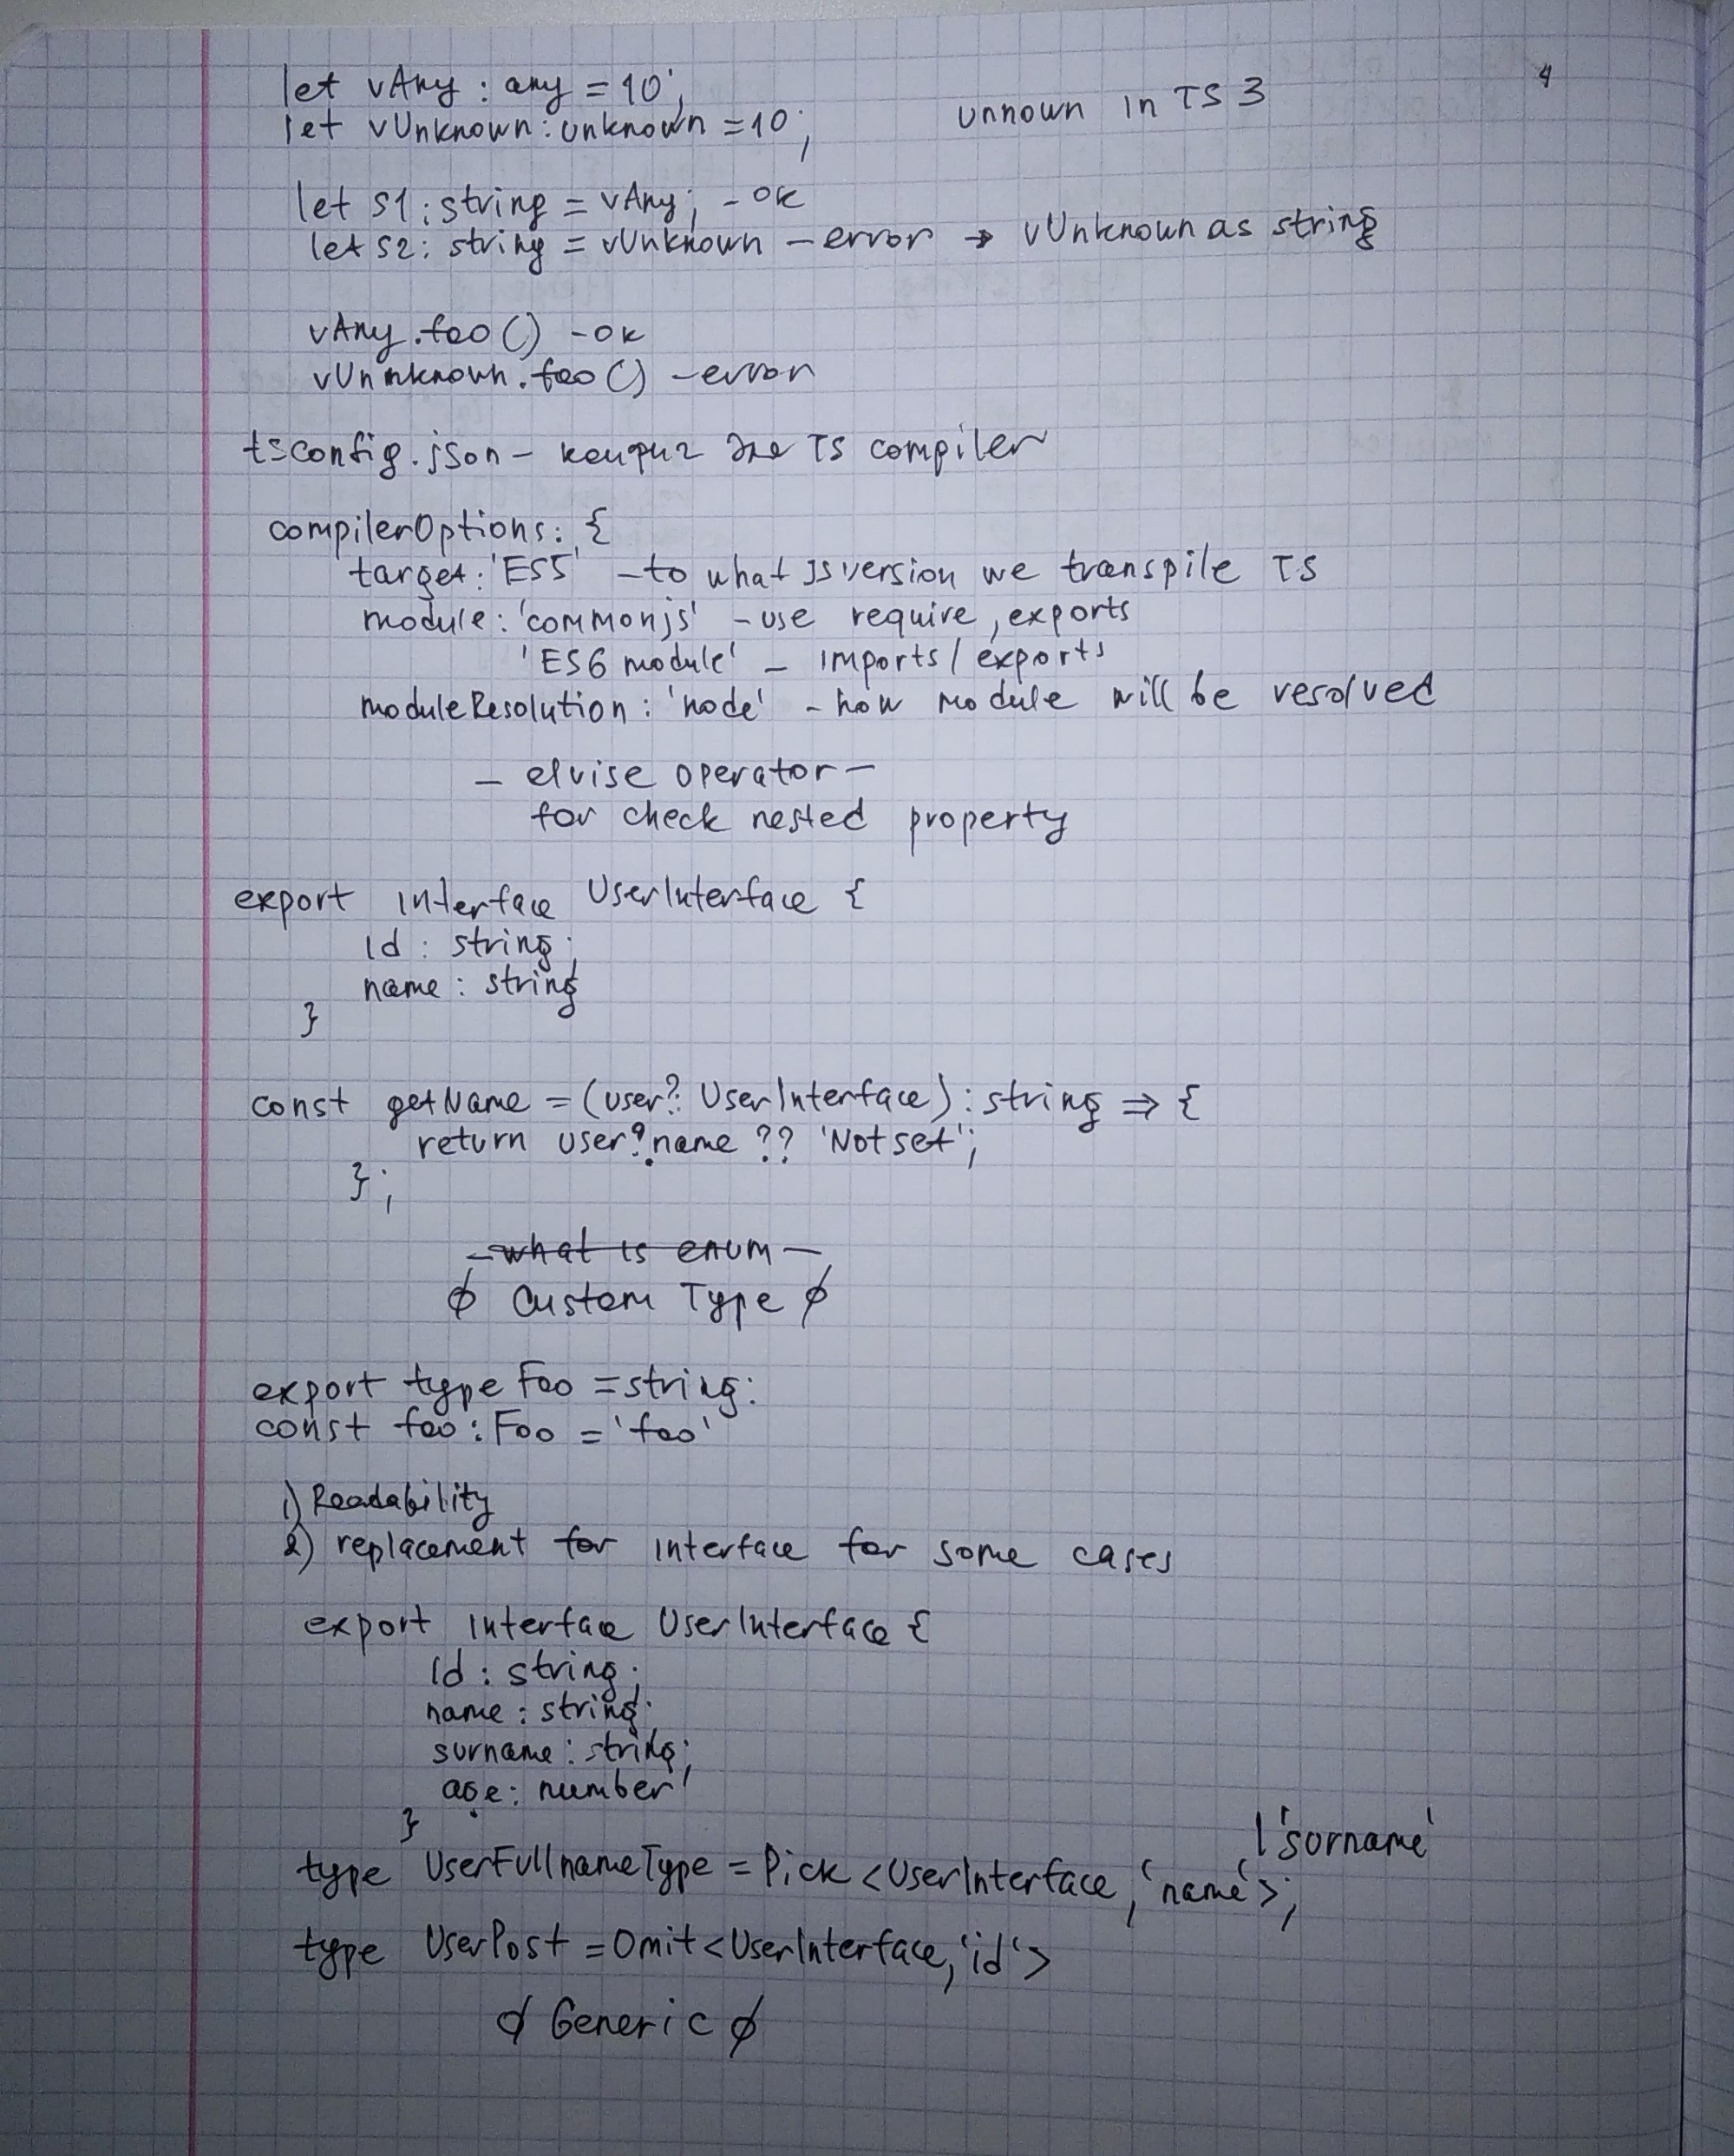 4
let vAny : any = 10;
let vUnknown : unknown = 10; unnown in TS 3
let s1 : string = vAny; - ok
let s2 : string = vUnknown - error → vUnknown as string
vAny.foo() - ok
vUnmknown.foo() - error
tsconfig.json - конфиг для TS compiler
compilerOptions: {
target: 'ES5' - to what JS version we transpile TS
module: 'commonjs' - use require, exports
'ES6 module' - imports / exports
moduleResolution : 'node' - how module will be resolved
- elvise operator -
for check nested property
export interface UserInterface {
id : string;
name : string
}
const getName = (user?: UserInterface) : string => {
return user?.name ?? 'Not set';
};
- what is enum -
ϕ Custom Type ϕ
export type Foo = string:
const foo : Foo = 'foo'
1) Readability
2) replacement for interface for some cases
export interface UserInterface {
id : string;
name : string;
surname : string;
age : number
}
type UserFullnameType = Pick <UserInterface, 'name' | 'sorname'>;
type UserPost = Omit <UserInterface, 'id'>
ϕ Generic ϕ